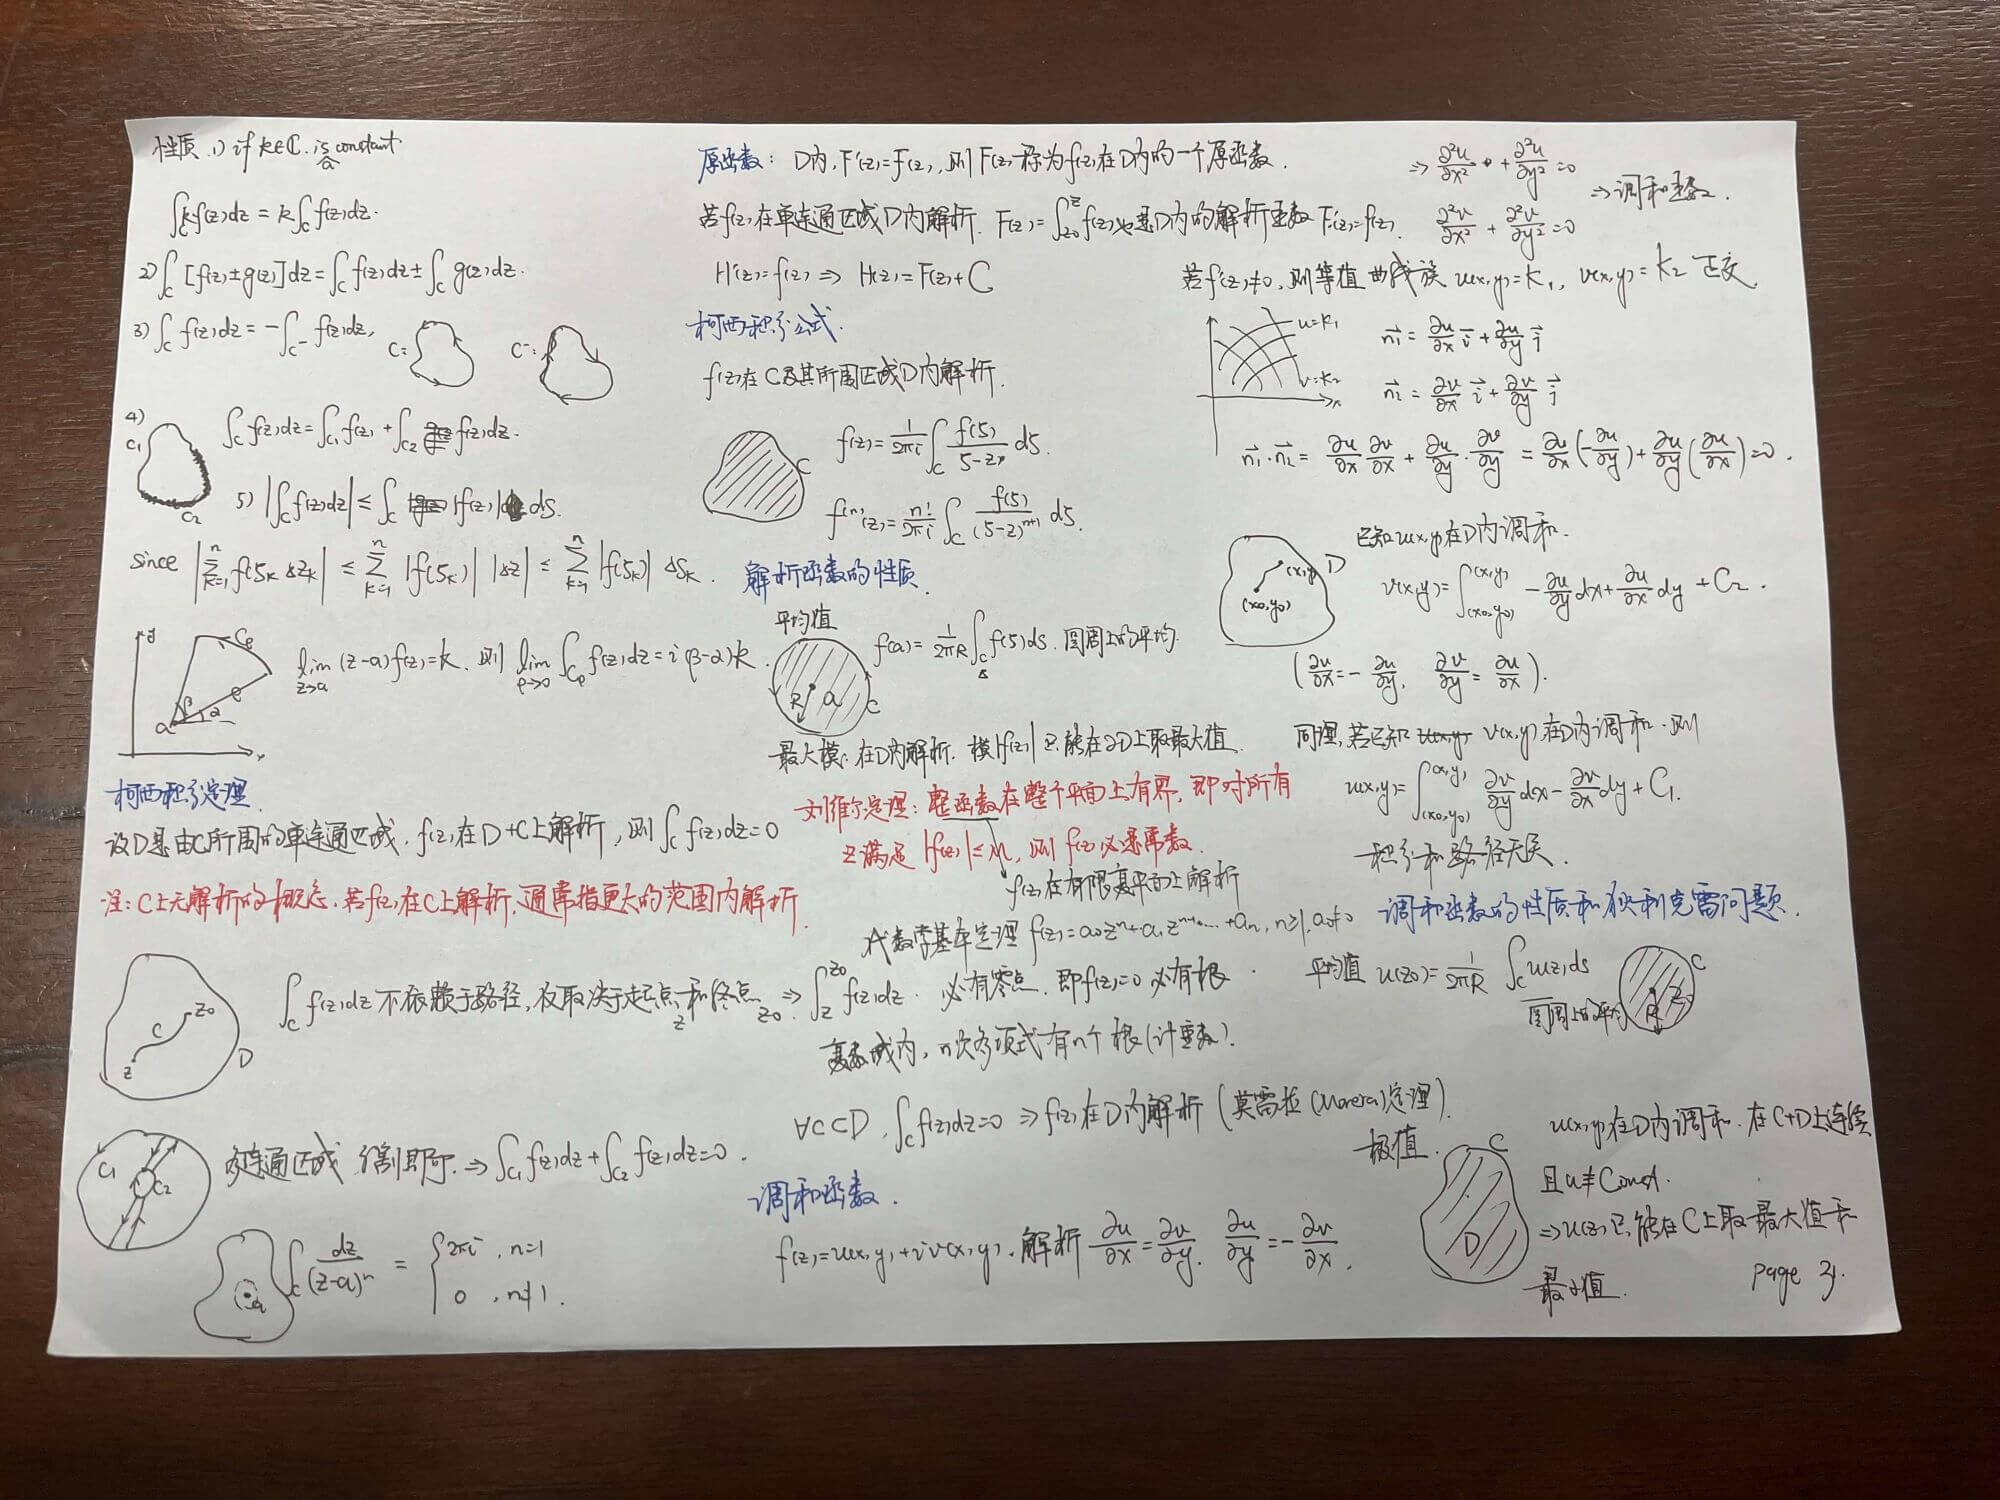 性质 1) if k∈ℂ is a constant.
∫_C kf(z)dz = k∫_C f(z)dz.
2) ∫_C [f(z)±g(z)]dz = ∫_C f(z)dz ± ∫_C g(z)dz.
3) ∫_C f(z)dz = -∫_{C^-} f(z)dz,
C: C^-:
4)
C₁
C₂
∫_C f(z)dz = ∫_{C₁} f(z) + ∫_{C₂} f(z)dz.
5) |∫_C f(z)dz| ≤ ∫_C |f(z)| ds.
since |Σ_{k=1}^n f(ζ_k Δz_k| ≤ Σ_{k=1}^n |f(ζ_k)| |Δz| ≤ Σ_{k=1}^n |f(ζ_k)| ΔS_k.
y C_ρ ρ β α a x
lim_{z→a} (z-a)f(z)=k. 则 lim_{ρ→0} ∫_{C_ρ} f(z)dz = i(β-α)k.
柯西积分定理
设D是由C所围的单连通区域, f(z)在D+C上解析, 则 ∫_C f(z)dz=0
注: C上无解析的概念, 若f(z)在C上解析, 通常指更大的范围内解析.
C z₀ z D
∫_C f(z)dz 不依赖于路径, 仅取决于起点z和终点z₀. ⇒ ∫_z^{z₀} f(z)dz.
C₁ C₂
多连通区域 分割即可. ⇒ ∫_{C₁} f(z)dz + ∫_{C₂} f(z)dz=0.
a
∫_C dz/(z-a)^n = { 2πi, n=1
0, n≠1.
原函数: D内, F'(z)=f(z), 则F(z)称为f(z)在D内的一个原函数.
若f(z)在单连通区域D内解析. F(z)=∫_{z₀}^z f(z)也是D内的解析函数 F'(z)=f(z).
H'(z)=f(z) ⇒ H(z)=F(z)+C
柯西积分公式.
f(z)在C及其所围区域D内解析.
C
f(z)= 1/(2πi) ∫_C f(ζ)/(ζ-z) dζ.
f^{(n)}(z)= n!/(2πi) ∫_C f(ζ)/(ζ-z)^{n+1} dζ.
解析函数的性质.
平均值
R a C
f(a)= 1/(2πR) ∫_C f(ζ)ds. 圆周上的平均.
最大模: 在D内解析. 模|f(z)|只能在∂D上取最大值.
刘维尔定理: 整函数在整个平面上有界, 即对所有
z满足 |f(z)|≤M, 则f(z)必是常数.
f(z)在有限复平面上解析
代数学基本定理 f(z)=a₀z^n+a₁z^{n-1}+...+a_n, n≥1, a₀≠0
必有零点, 即f(z)=0必有根.
复数域内, n次多项式有n个根(计重数).
∀C⊂D, ∫_C f(z)dz=0 ⇒ f(z)在D内解析 (莫雷拉(Morera)定理).
调和函数.
f(z)=u(x,y)+iv(x,y). 解析 ∂u/∂x=∂v/∂y. ∂u/∂y=-∂v/∂x.
⇒ ∂²u/∂x² + ∂²u/∂y²=0
∂²v/∂x² + ∂²v/∂y²=0
⇒调和函数.
若f'(z)≠0, 则等值曲线族 u(x,y)=K₁, v(x,y)=K₂ 正交
u=K₁
v=K₂
x
n₁ = ∂u/∂x i + ∂u/∂y j
n₂ = ∂v/∂x i + ∂v/∂y j
n₁·n₂ = ∂u/∂x ∂v/∂x + ∂u/∂y · ∂v/∂y = ∂u/∂x(-∂u/∂y) + ∂u/∂y(∂u/∂x)=0.
(x,y) D
(x₀,y₀)
已知u(x,y)在D内调和.
v(x,y)=∫_{(x₀,y₀)}^{(x,y)} -∂u/∂y dx + ∂u/∂x dy + C₂.
(∂v/∂x = -∂u/∂y, ∂v/∂y = ∂u/∂x).
同理, 若已知 v(x,y)在D内调和. 则
u(x,y)=∫_{(x₀,y₀)}^{(x,y)} ∂v/∂y dx - ∂v/∂x dy + C₁.
积分和路径无关.
调和函数的性质和狄利克雷问题.
平均值 u(z₀)= 1/(2πR) ∫_C u(z)ds
圆周上的平均
C R z₀
极值.
C
D
u(x,y)在D内调和. 在C+D上连续
且u≢Const.
⇒u(z)只能在C上取最大值和
最小值.
page 21.